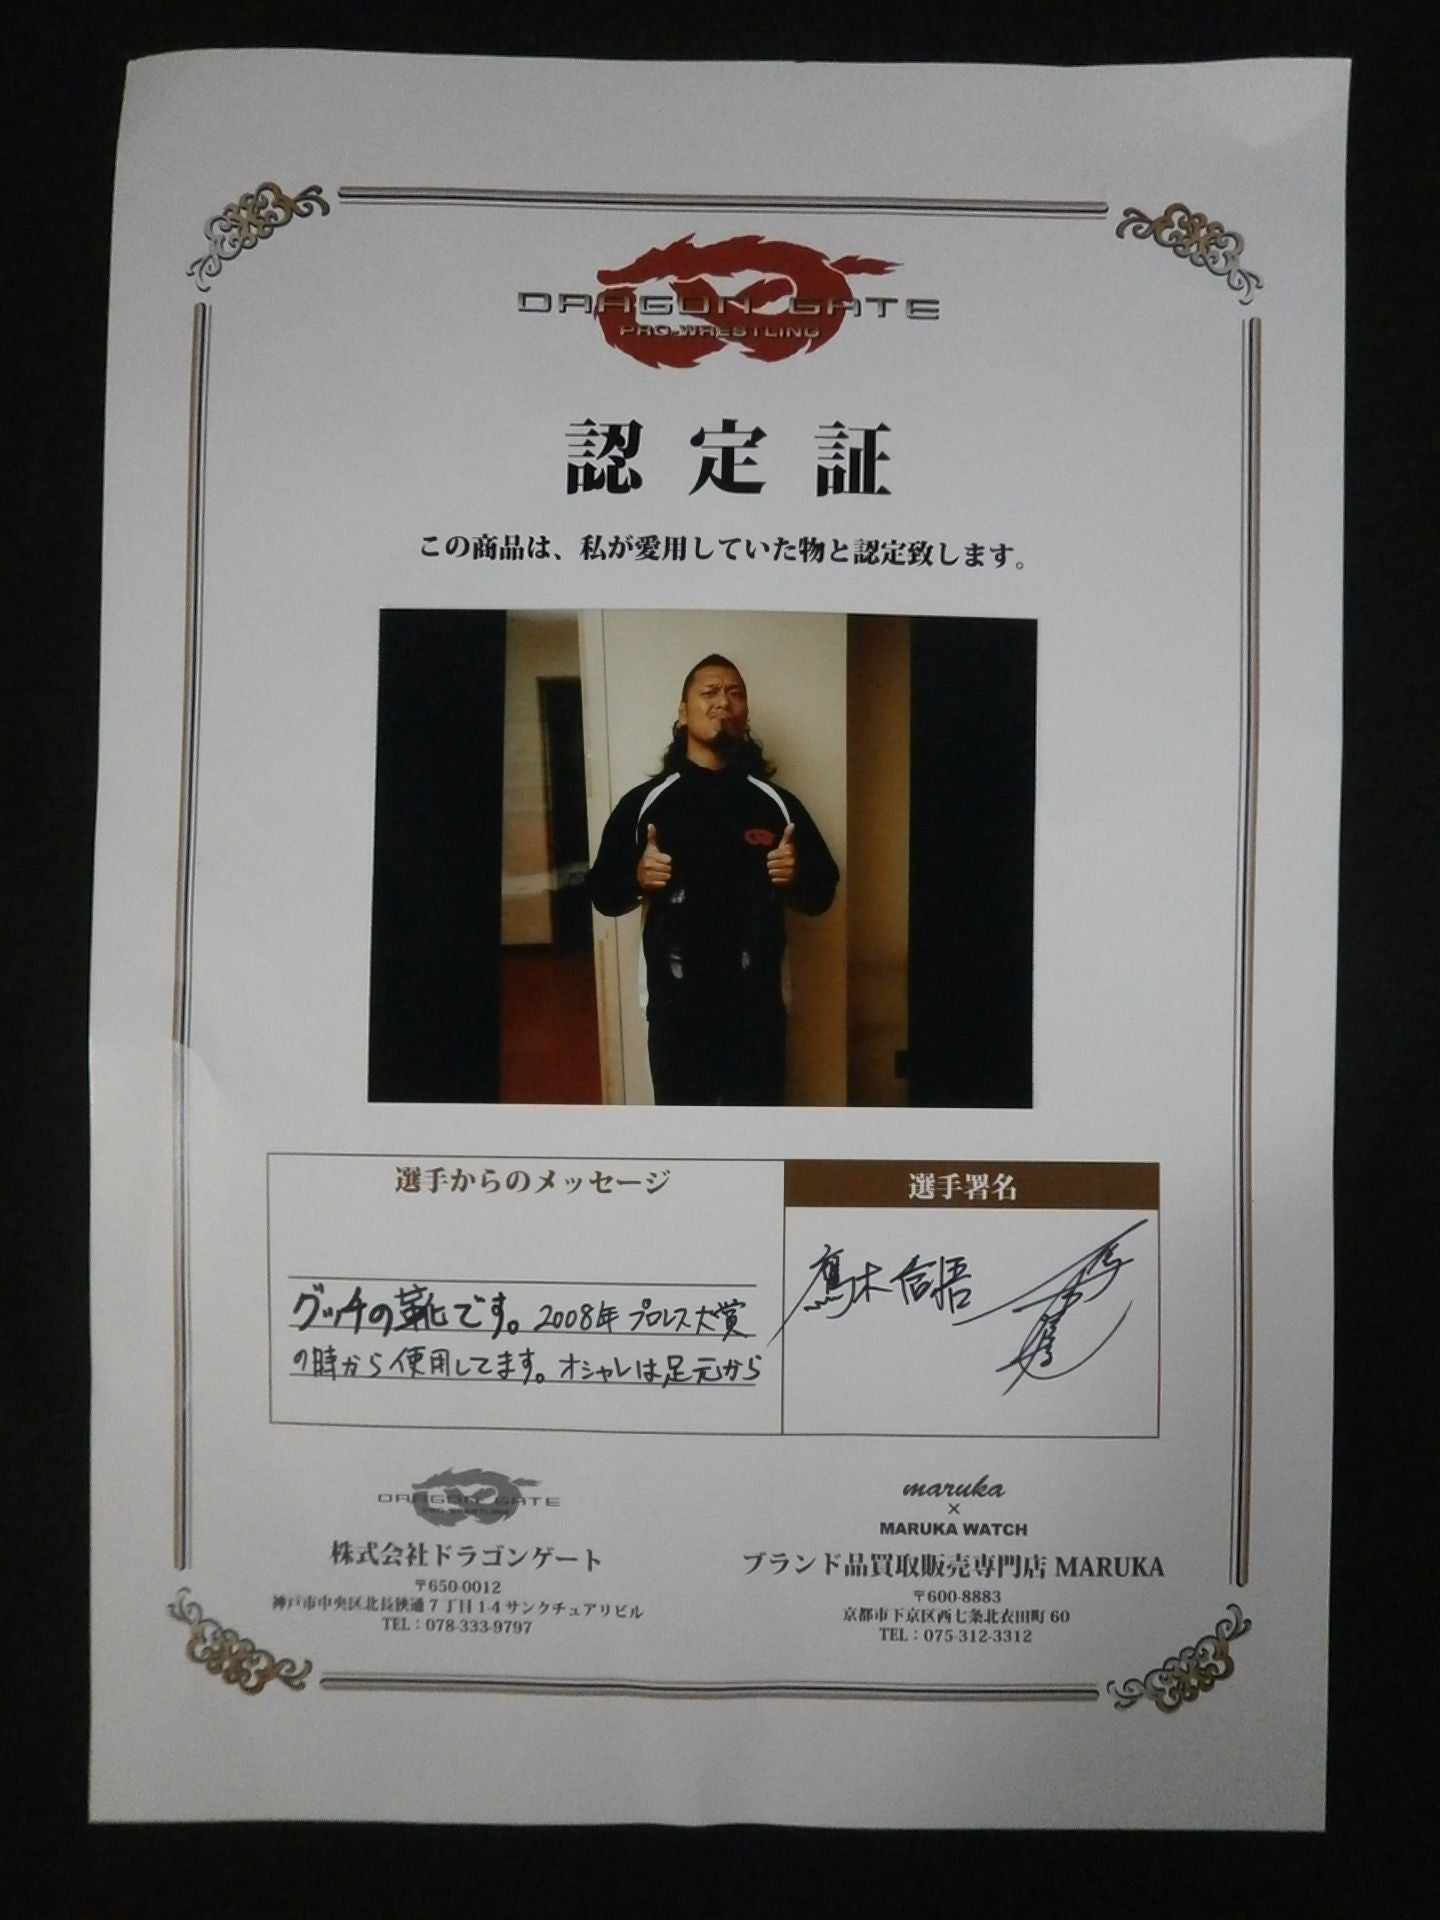 DRAGON GATE
PRO-WRESTLING
認定証
この商品は、私が愛用していた物と認定致します。
選手からのメッセージ
選手署名
グッチの靴です。2008年プロレス大賞
の時から使用してます。オシャレは足元から
鷹木信悟
DRAGON GATE
PRO-WRESTLING
株式会社ドラゴンゲート
〒650-0012
神戸市中央区北長狭通7丁目1-4サンクチュアリビル
TEL：078-333-9797
maruka
×
MARUKA WATCH
ブランド品買取販売専門店 MARUKA
〒600-8883
京都市下京区西七条北衣田町60
TEL：075-312-3312